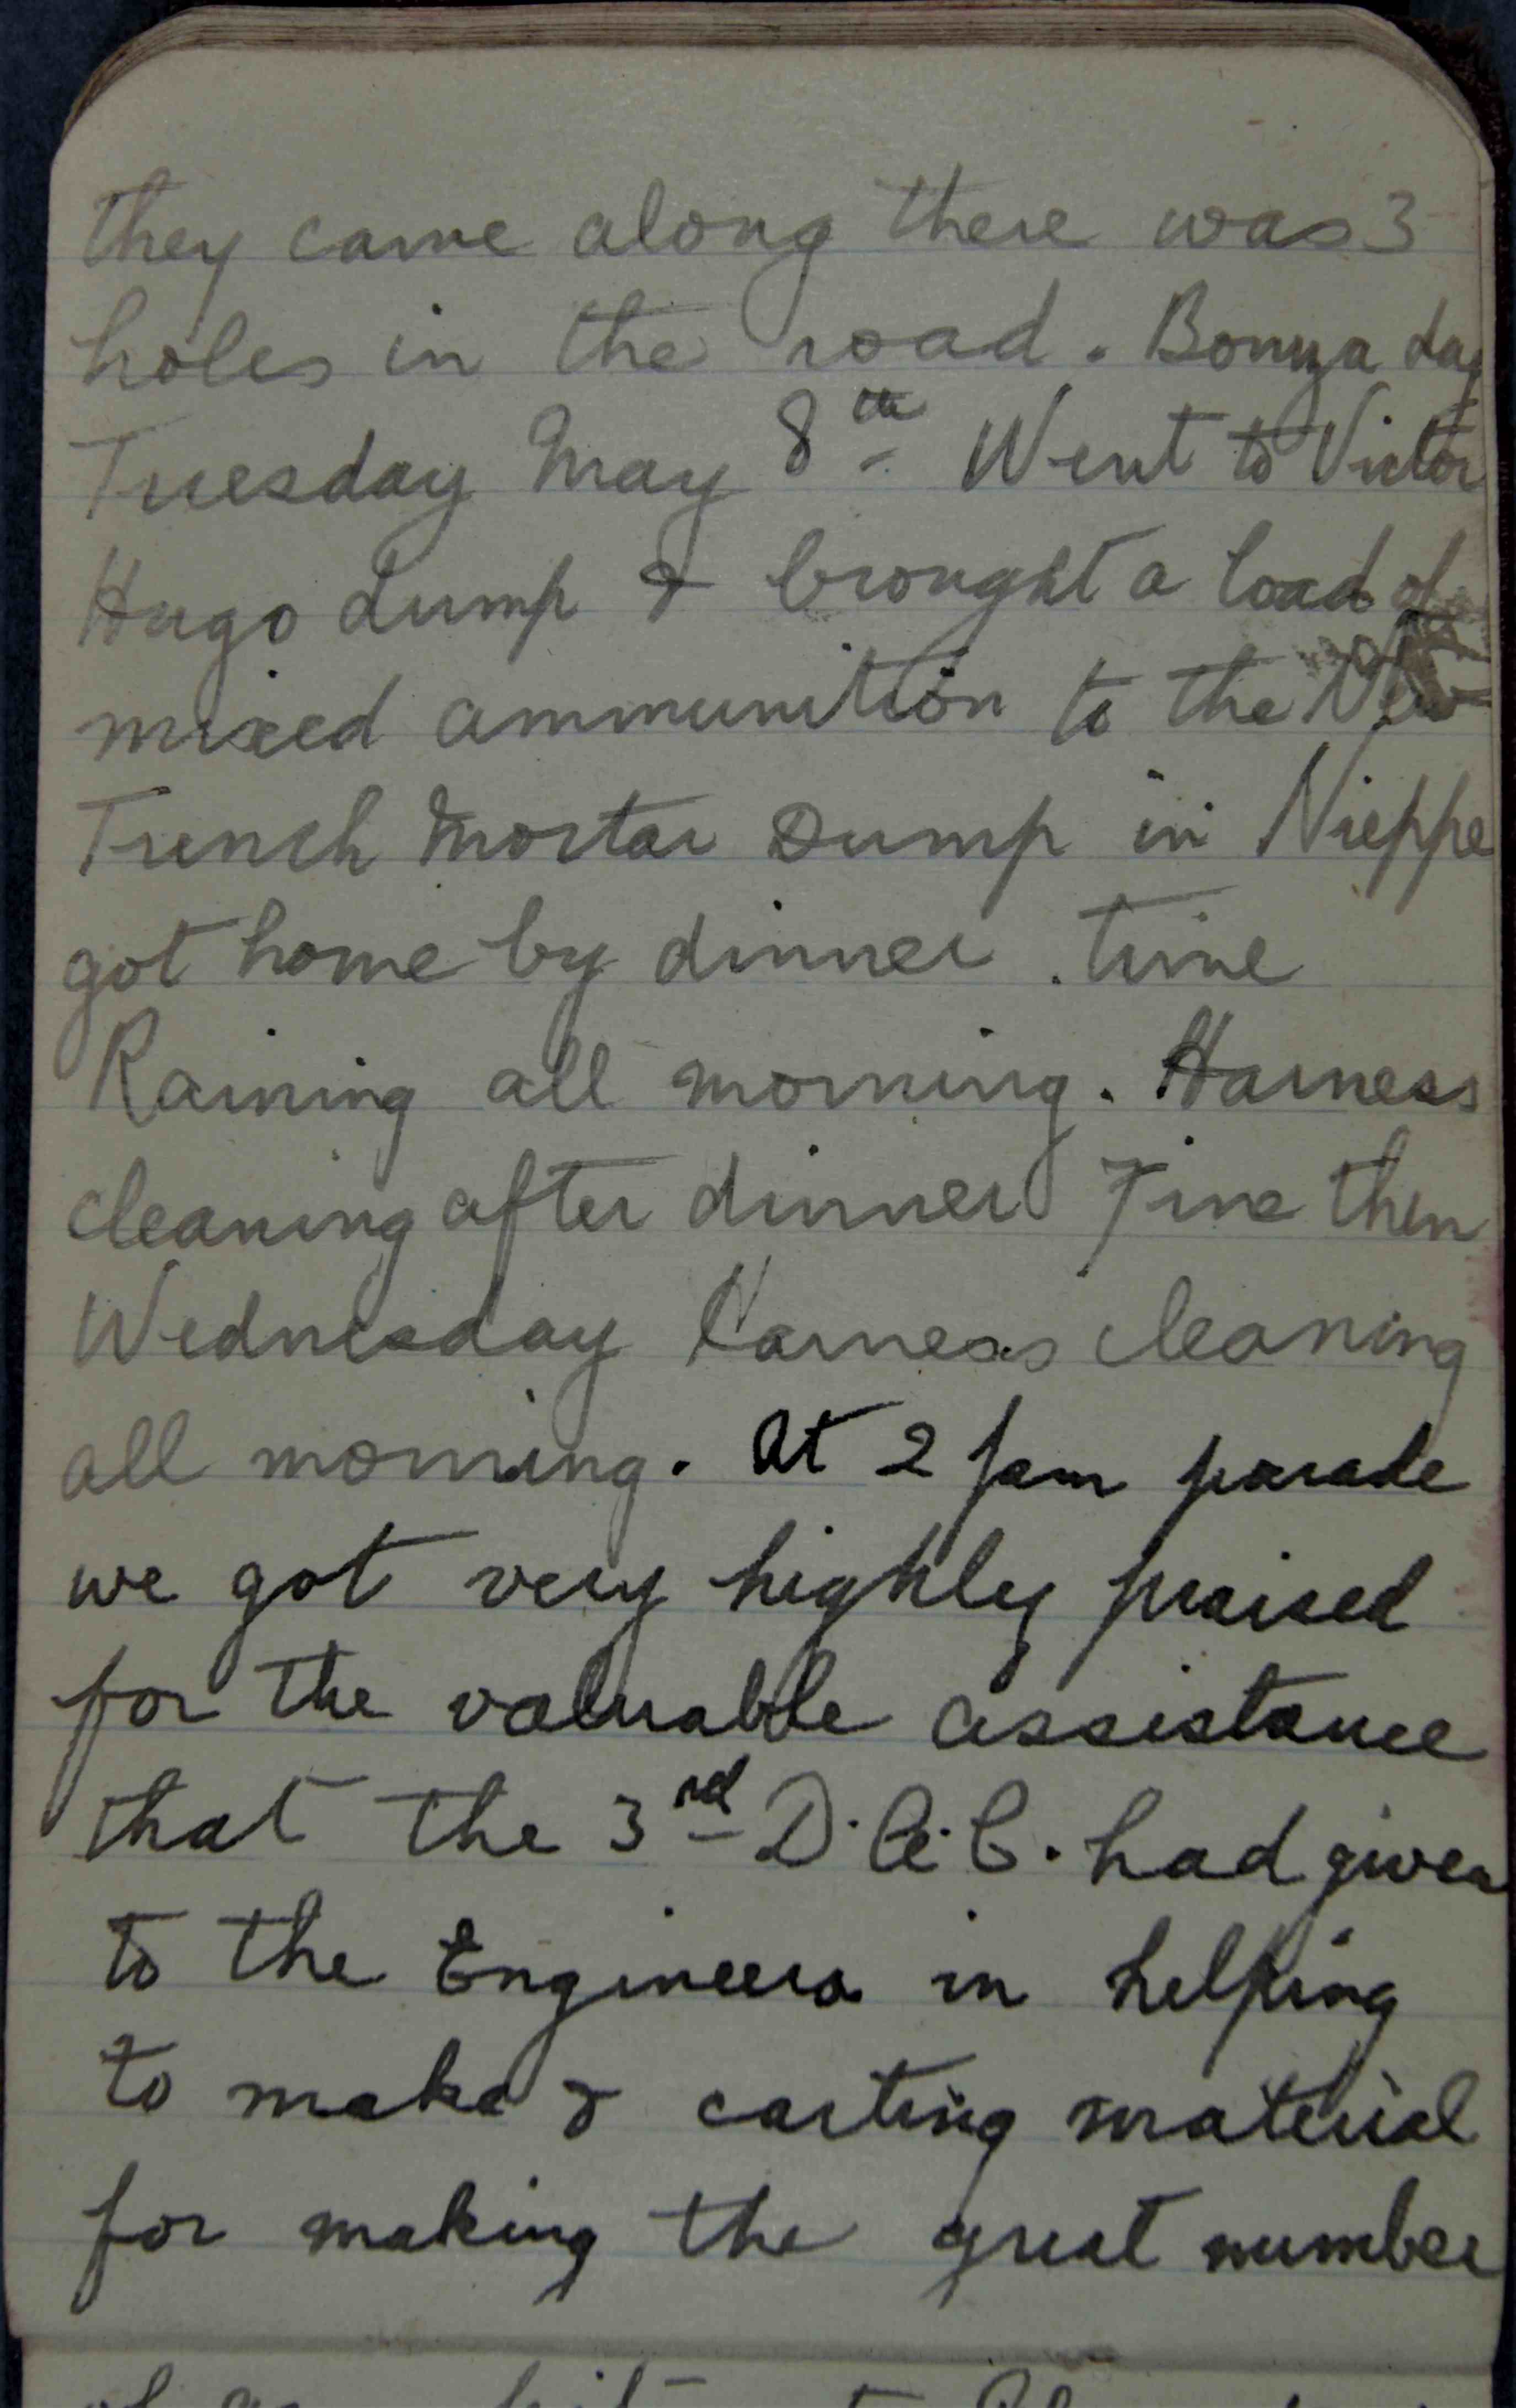 they came along there was 3
holes in the road. Bonza day
Tuesday May 8th Went to Victor
Hugo dump & brought a load of
mixed ammunition to the New
Trench Mortar Dump in Nieppe
got home by dinner. time
Raining all morning. Harness
cleaning after dinner Fine then
Wednesday Harness cleaning
all morning. At 2 pm parade
we got very highly praised
for the valuable assistance
that the 3rd D.A.C. had given
to the Engineers in helping
to make & carting material
for making the great number
of